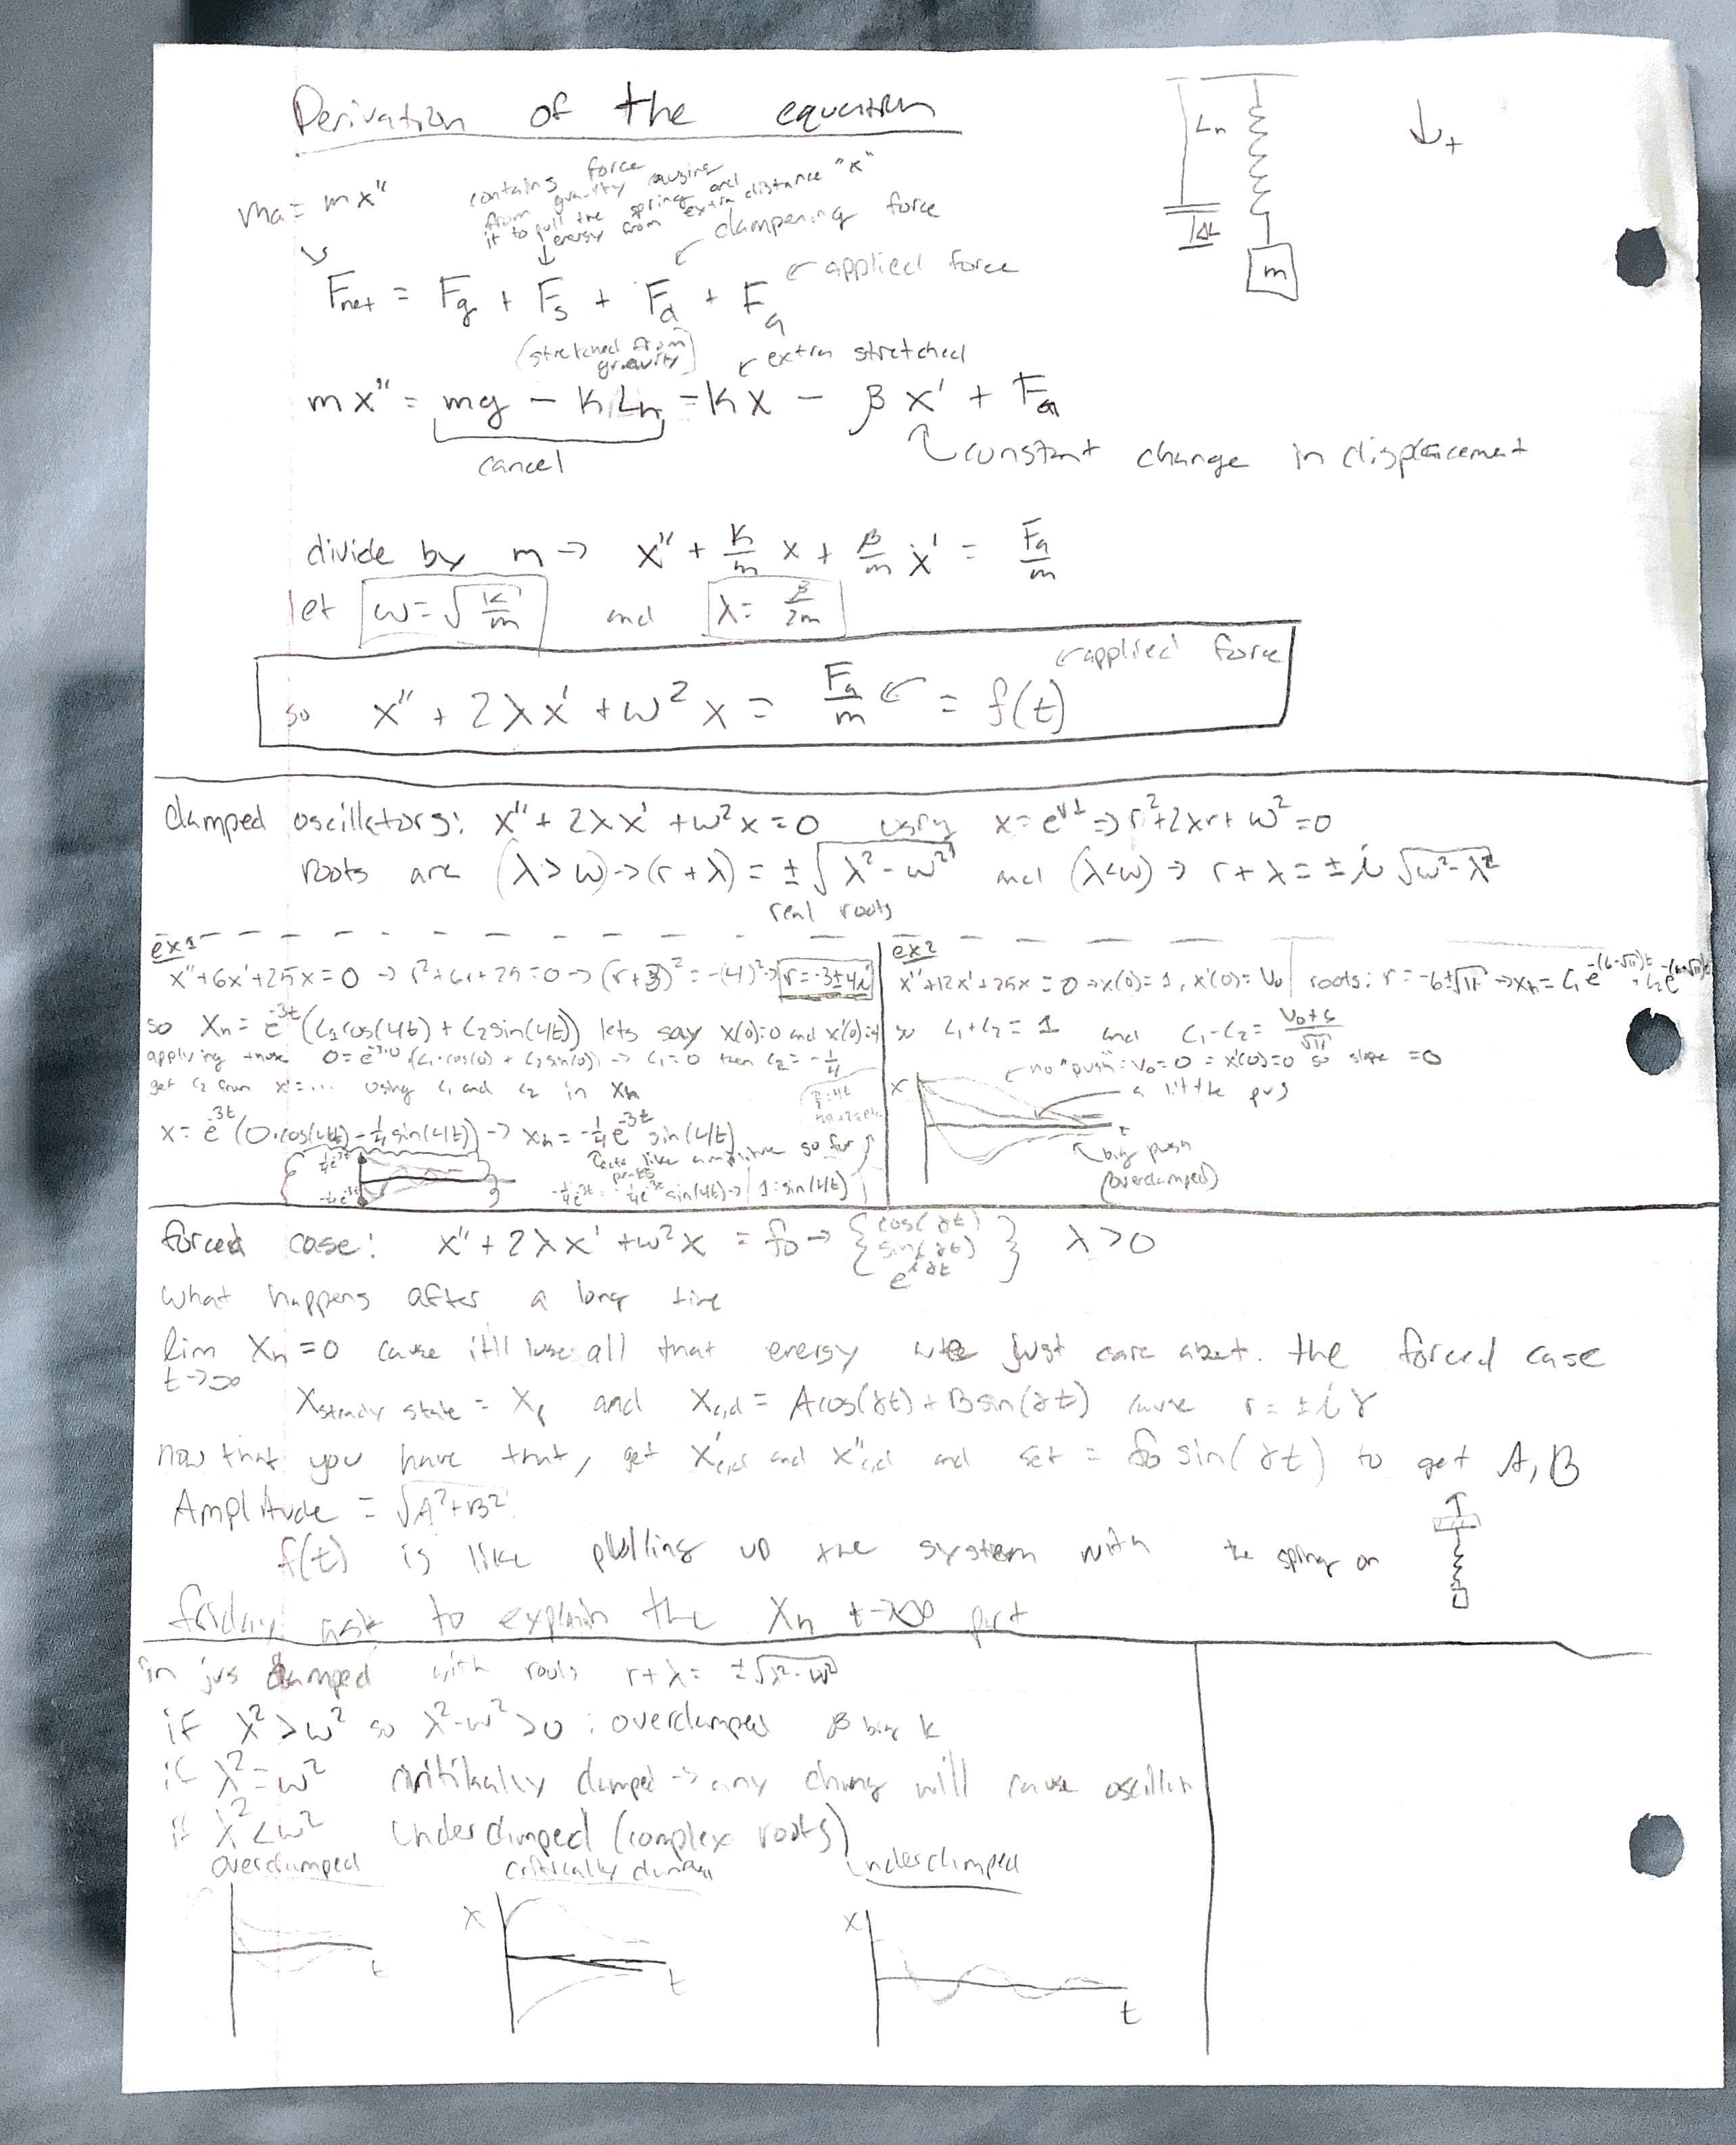 Derivation of the equation
Ln
↓+
ΔL
m
ma = mx"
contains force
from gravity causing
it to pull the spring and
energy from extra distance "x"
dampening force
applied force
Fnet = Fg + Fs + Fd + Fa
(stretched from gravity)
extra stretched
mx" = mg - kLn - kx - βx' + Fa
cancel
constant change in displacement
divide by m → x" + k/m x + β/m x' = Fa/m
let ω = √(k/m) and λ = β/2m
applied force
so x" + 2λx' + ω² x = Fa/m = f(t)
damped oscillators: x" + 2λx' + ω²x = 0 using x = e^rt ⇒ r² + 2λr + ω² = 0
roots are (λ > ω) → (r + λ) = ± √(λ² - ω²) and (λ<ω) → r + λ = ± i √(ω² - λ²)
real roots
ex1
x" + 6x' + 25x = 0 → r² + 6r + 25 = 0 → (r+3)² = -(4)² → r = -3 ± 4i
so Xh = e^-3t (C1cos(4t) + C2sin(4t)) lets say x(0)=0 and x'(0)=
applying those 0 = e^-3·0 (C1·cos(0) + C2sin(0)) → C1 = 0 then C2 = -1/4
get C2 from x' = ... using C1 and C2 in Xh
x = e^-3t (0·cos(4t) - 1/4 sin(4t)) → Xh = -1/4 e^-3t sin(4t)
acts like amplitude so for
peaks
-1/4 e^-3t = -1/4 e^-3t sin(4t) → 1 = sin(4t)
1/4 e^-3t
-1/4 e^-3t
ex2
x" + 12x' + 25x = 0 → x(0) = 1, x'(0) = V0 roots: r = -6 ± √11 → Xh = C1 e^-(6-√11)t + C2 e^-(6+√11)t
so C1 + C2 = 1 and C1 - C2 = (V0+6)/√11
no "push": V0 = 0 = x'(0) = 0 so slope = 0
x
a little pus
t
big push
(overdamped)
forced case: x" + 2λx' + ω²x = f0 → { cos(γt) sin(γt) e^iγt } λ > 0
what happens after a long time
lim t→∞ Xh = 0 cause itll lose all that energy we just care about. the forced case
Xsteady state = Xp and Xc,d = Acos(γt) + Bsin(γt) cause r = ± i γ
now that you have that, get X'c,d and X"c,d and set = f0 sin(γt) to get A, B
Amplitude = √(A² + B²)
f(t) is like pulling up the system with the spring on
friday ask to explain the Xh t→∞ part
in jus damped with roots r + λ = ± √(λ² - ω²)
if λ² > ω² so λ² - ω² > 0 : overdamped β big k
if λ² = ω² critikally damped → any chang will cause oscillatn
if λ² < ω² underdamped (complex roots)
overdamped
critically
underdamped
t
x
t
x
t